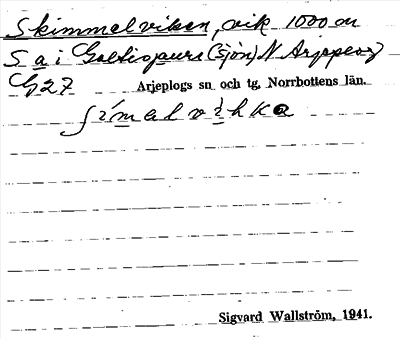 Skimmelviken, vik 1000 m
S a i Galtisjaure (sjön) N Arjeplog
G27 Arjeplogs sn och tg, Norrbottens län.
Sigvard Wallström, 1941.